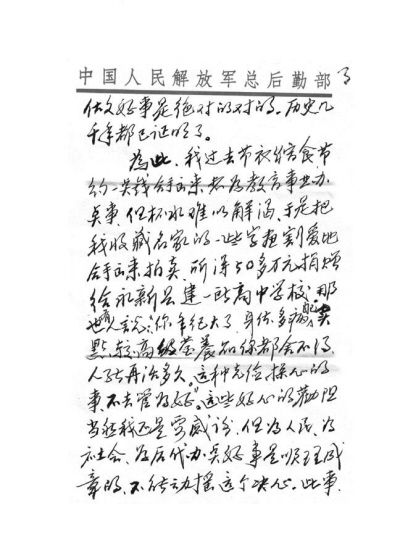 中国人民解放军总后勤部 3
好事是绝对的对的,历史几
千年都已证明了。
为此,我过去节衣缩食节
约一些钱拿出来 为教育事业办
点事,但杯水难以解渴,于是把
我收藏名家的一些字画割爱地
拿出来拍卖,所得50多万元捐赠
给永新县建一所高中学校,那
有人 说:你年纪大了,身体多病, 买
点较高级营养品你都舍不得,
人 再活多久。这种 操心的
事不去管为好"。这些好心的劝阻
当然我还是要感谢,但为人民、为
社会、为后代办点好事是顺理成
章的,不能动摇这个决心。此事,